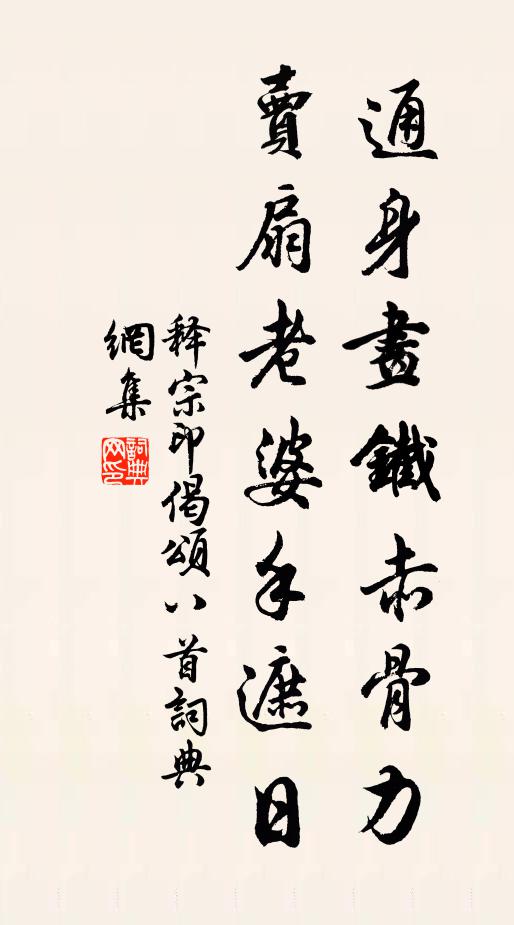 通身畫鐵赤骨力
賣扇老婆手遮日
释宗印偈頌八首詞典
網集
詞典網印